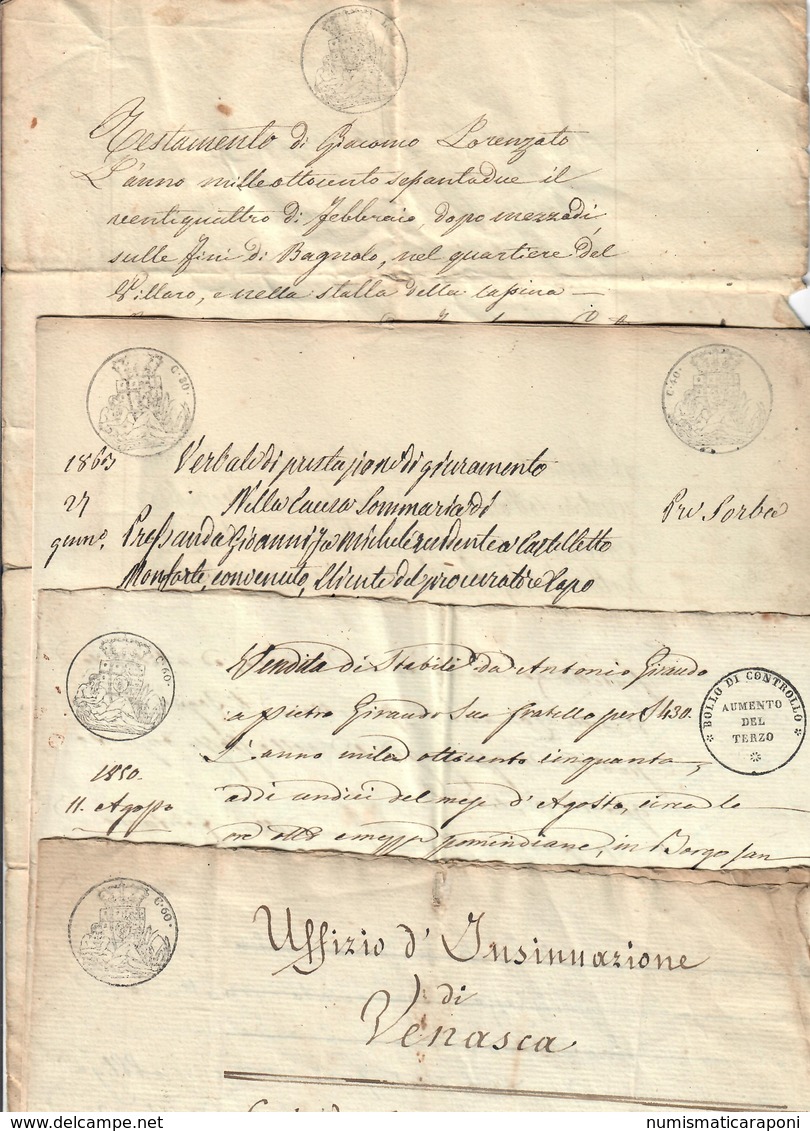 Testamento di Giacomo Lorenzato
L'anno milleottocento settantadue il
ventiquattro di Febbraio, dopo mezzodì,
sulle fini di Bagnolo, nel quartiere del
Villaro, e nella stalla della cassina
C. 80.
C. 40.
1863
27
giugno.
Verbale di prestazione di giuramento
Nella Causa Sommaria di
Pre Sorba
Giovanni fu Michele residente a Castelletto
Monforte, convenuto, Cliente del procuratore Capo
C. 60.
1850.
11. Agosto
Vendita di Stabili da Antonio Giraudo
a Pietro Giraudo Suo fratello per £ 430.
L'anno mille ottocento cinquanta,
addi undici del mese d'Agosto, circa le
ore otto e mezza pomeridiane, in Borgo San
BOLLO DI CONTROLLO
AUMENTO
DEL
TERZO
C. 60.
Uffizio d'Insinuazione
di
Venasca
numismaticaraponi